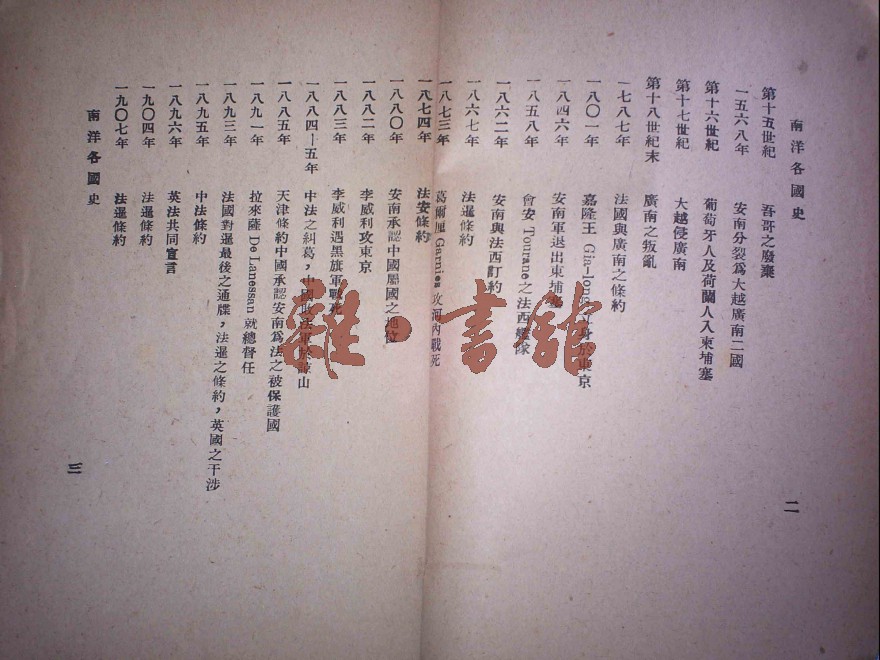 南洋各國史
第十五世紀 吾哥之廢棄
一五六八年 安南分裂爲大越廣南二國
第十六世紀 葡萄牙人及荷蘭人入柬埔塞
第十七世紀 大越侵廣南
第十八世紀末 廣南之叛亂
一七八七年 法國與廣南之條約
一八〇一年 嘉隆王 Gia-long 於東京
一八四六年 安南軍退出柬埔
一八五八年 會安 Tourane 之法西艦隊
一八六二年 安南與法西訂約
二
一八六七年 法暹條約
一八七三年 葛爾厘 Garnies 攻河內戰死
一八七四年 法安條約
一八八〇年 安南承認中國屬國之地位
一八八二年 李威利攻東京
一八八三年 李威利遇黑旗軍戰死
一八八四—五年 中法之糾葛，中國敗法軍於諒山
一八八五年 天津條約中國承認安南爲法之被保護國
一八九一年 拉來薩 De Lanessan 就總督任
一八九三年 法國對暹最後之通牒，法暹之條約，英國之干涉
一八九五年 中法條約
一八九六年 英法共同宣言
一九〇四年 法暹條約
一九〇七年 法暹條約
南洋各國史
三
雜·書館